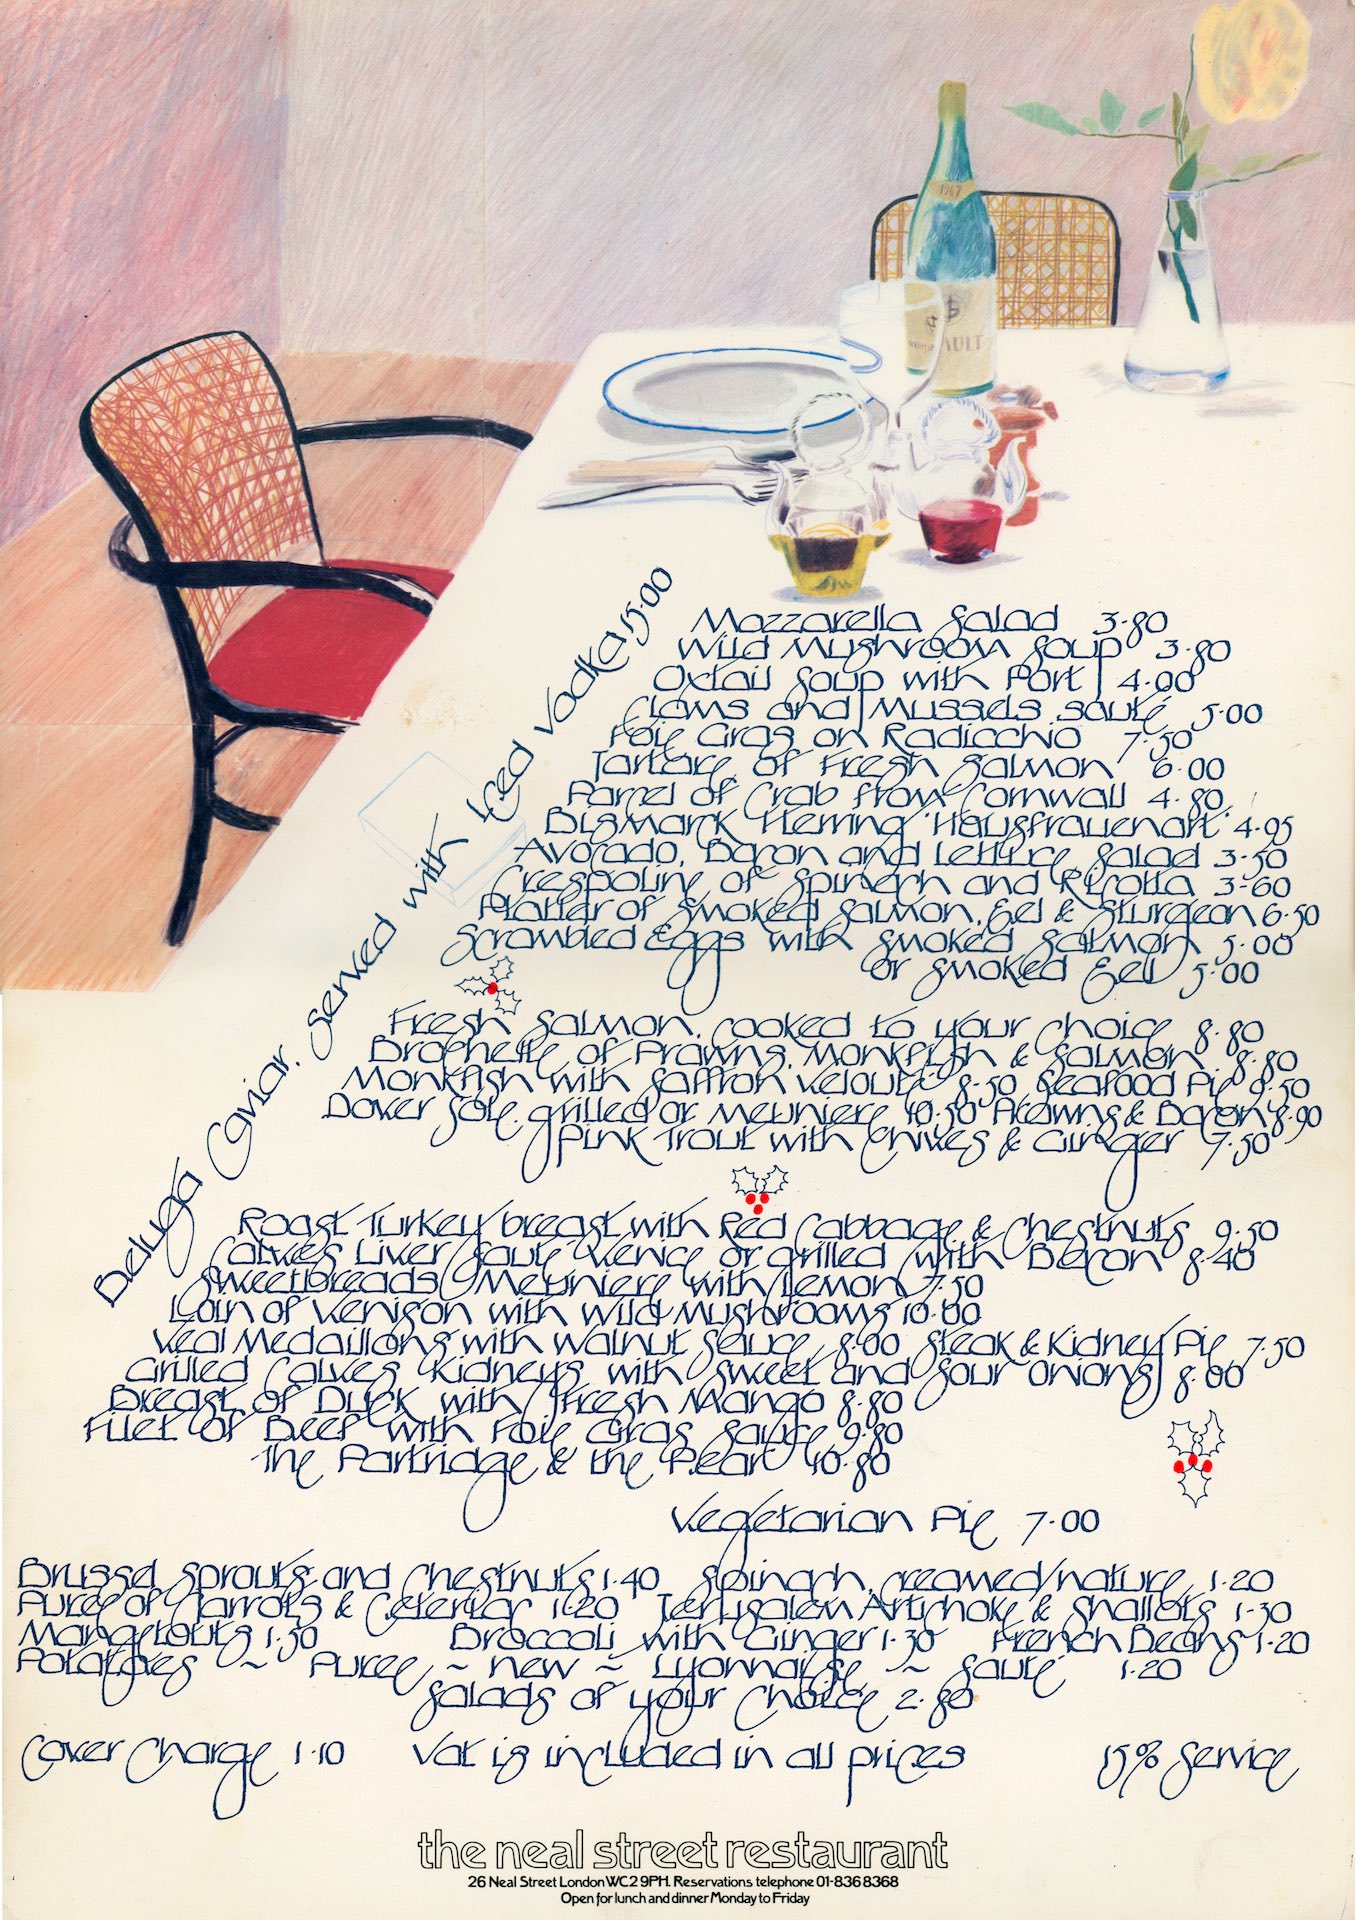 1967
Beluga Caviar, Served with Iced Vodka 15·00
Mozzarella Salad 3·80
Wild Mushroom Soup 3·80
Oxtail Soup with Port 4·00
Clams and Mussels sauté 5·00
Foie Gras on Radicchio 7·50
Tartare of Fresh Salmon 6·00
Parcel of Crab from Cornwall 4·80
Bismarck Herring 'Hausfrauenart' 4·95
Avocado, Bacon and Lettuce Salad 3·50
Crespoline of Spinach and Ricotta 3·60
Platter of Smoked Salmon, Eel & Sturgeon 6·50
Scrambled Eggs with Smoked Salmon 5·00
or Smoked Eel 5·00
Fresh Salmon, cooked to your choice 8·80
Brochette of Prawns, Monkfish & Salmon 8·80
Monkfish with Saffron Velouté 8·50 Seafood Pie 9·50
Dover Sole, grilled or Meuniere 10·50 Prawns & Bacon 8·90
Pink Trout with Chives & Ginger 7·50
Roast Turkey breast with Red Cabbage & Chestnuts 9·50
Calves Liver Sauté Venice or grilled with Bacon 8·40
Sweetbreads Meuniere with Lemon 7·50
Loin of Venison with Wild Mushrooms 10·00
Veal Medaillons with Walnut Sauce 8·00 Steak & Kidney Pie 7·50
Grilled Calves Kidneys with Sweet and Sour Onions 8·00
Breast of Duck with Fresh Mango 8·80
Filet of Beef with Foie Gras Sauce 9·80
The Partridge & the Pear 10·80
Vegetarian Pie 7·00
Brussel Sprouts and Chestnuts 1·40 Spinach, creamed/nature 1·20
Puree of Carrots & Celeriac 1·20 Jerusalem Artichoke & Shallots 1·30
Mangetouts 1·50 Broccoli with Ginger 1·30 French Beans 1·20
Potatoes ~ Puree ~ new ~ Lyonnaise ~ Sauté 1·20
Salads of your Choice 2·80
Cover Charge 1·10 Vat is included in all prices 15% Service
the neal street restaurant
26 Neal Street London WC2 9PH. Reservations telephone 01-836 8368
Open for lunch and dinner Monday to Friday